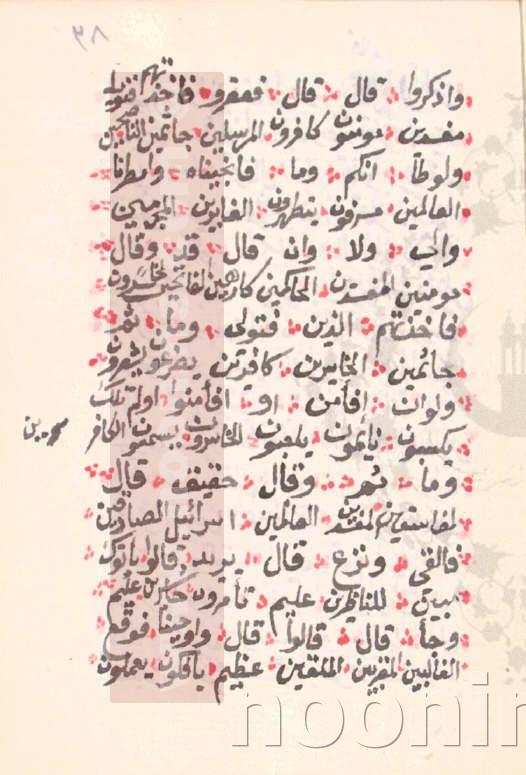 ٣٨
واذكروا قال قال فعقرو فاخذتهم فتولى
مفسدين مومنون كافرون المرسلين جاثمين الناصحين
ولوطاً انكم وما فانجيناه وامطرنا
العالمين مسرفون يتطهرون الغابرين المجرمين
والى ولا وان قال قد وقال
مومنين المفسدين الحاكمين كارهين الفاتحين لخاسرون
فاخذتهم الذين فتولى وما ثم
جاثمين الخاسرين كافرين يضرعون يشعرون
ولوان افأمن او افأمنوا اولم تلك
يكسبون نايمون يلعبون الخاسرون يسمعون الكافرين
وما ثم وقال حقيق قال
لفاسقين المفسدين العالمين اسرائيل الصادقين
فالقى ونزع قال يريد قالوا يأتوك
مبين للناظرين عليم تأمرون حاشرين عليم
وجأ قال قالوا قال واوحينا فوقع
الغالبين المقربين الملقين عظيم يافكون يعملون
noonin